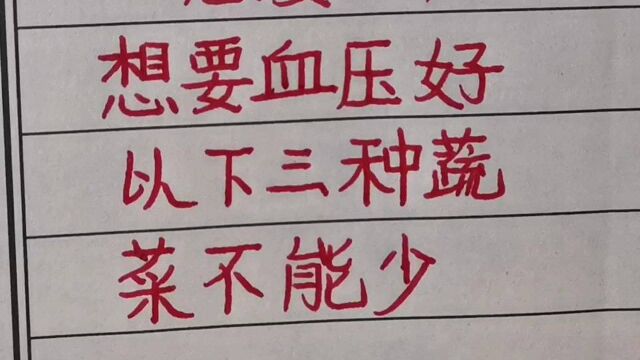 想要血压好
以下三种蔬
菜不能少